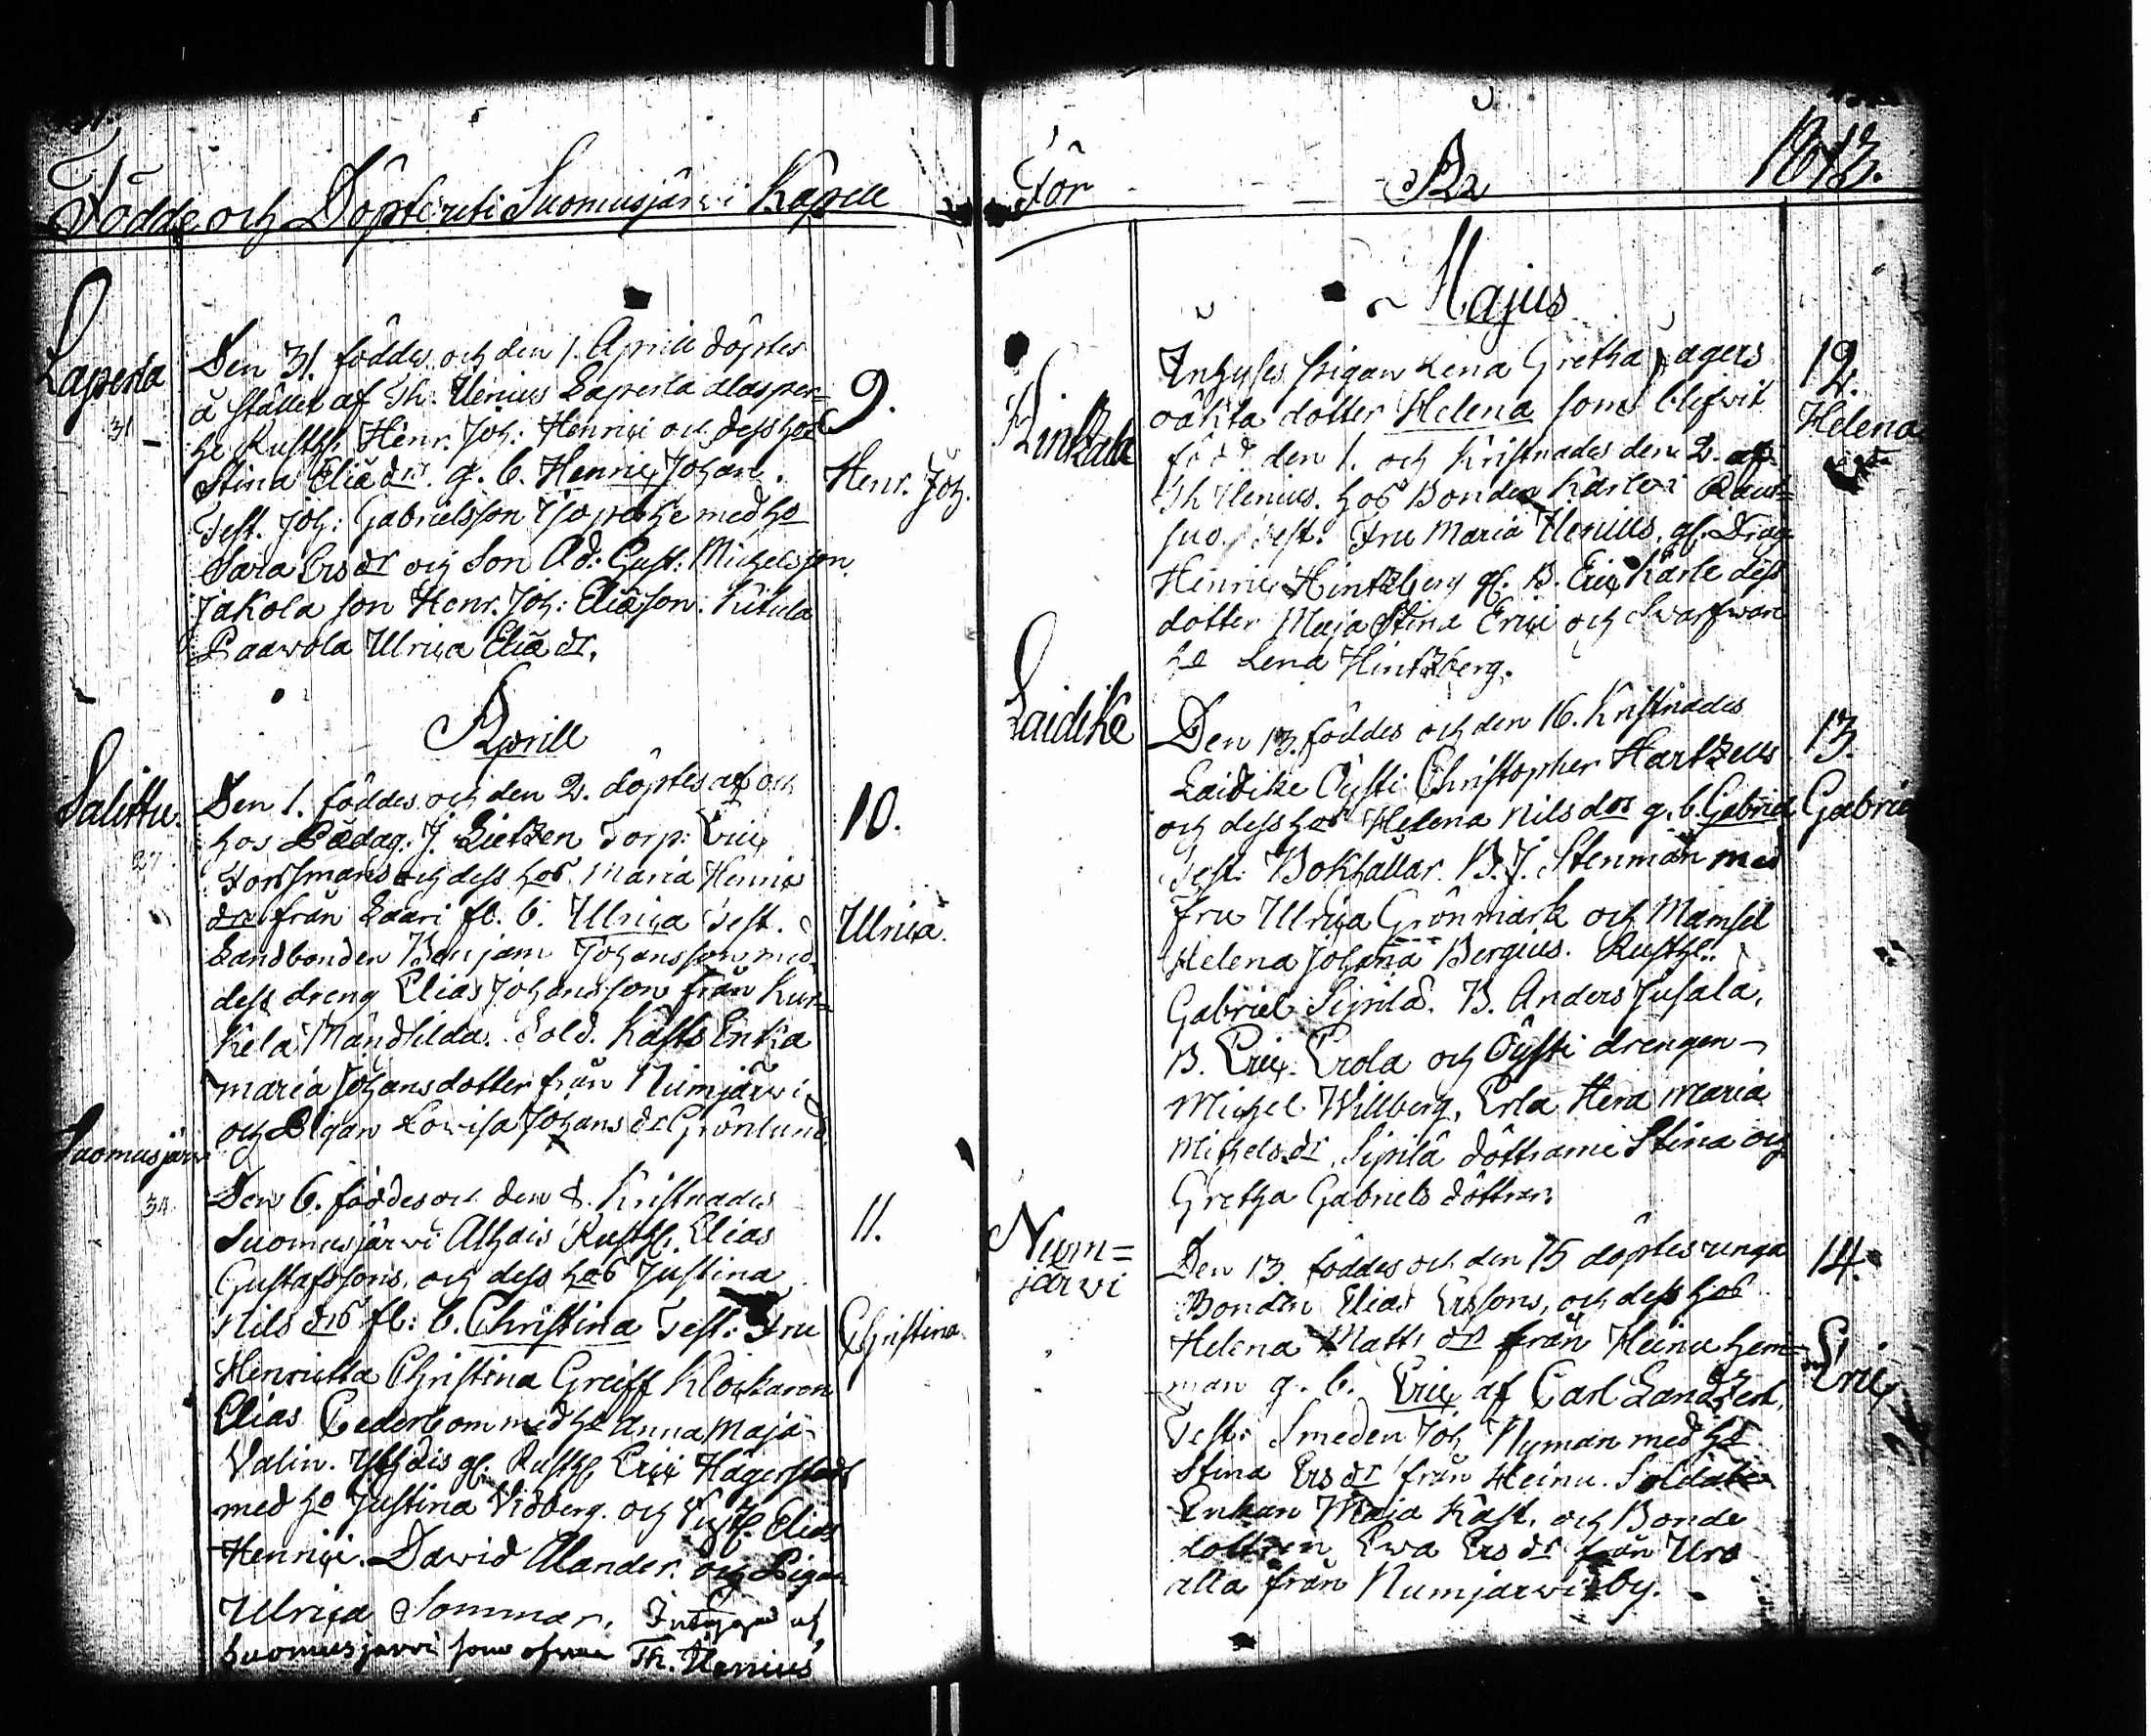 Födde och Döpte uti Suomusjärwi Kapell
Laperla
31
Den 31. föddes och den 1. Aprill döptes
å stället af Th. Ilenius Laperla alasper=
he Rusth. Henr. Joh: Henrici och dess hos
Stina Eliä dr. g. b. Henric Johan.
Test. Joh: Gabrielsson med ho
Sara Ersdr och Son Ad: Gust: Michelsson
Jakola son Henr. Joh: Eliäson. Kitula
Paawola Ulrica Eliä dr.
9.
Henr. Joh.
Aprill
Salittu
27
Den 1. föddes och den 2. döptes af och
hos Pædag. J. Lietzen Torp: Eric
Forssmans och dess hos Maria Henrics
dr från Laari fl. b. Ulrica Test.
Landbonden Benjam Johansson med
dess dreng Elias Johansson från Kur=
kela Mandhilda. Sold. Kasts Enka
Maria Johansdotter från Numjärwi
och Pigan Lowisa Johans dr Grönlund
10.
Ulrica.
Suomusjärwi
34
Den 6. föddes och den 8. Kristnades
Suomusjärwi Alhais Rusth. Elias
Gustafssons, och dess hos Justina
Nils drs fl: b. Christina Test: Fru
Henrietta Christina Greiff Klockaren
Elias Cederbom med ho Anna Maja
Valin. gl. Rusth Eric Hägerstedt
med ho Justina Vidberg. och Elias
Henrici. David Alander och Pigan
Ulrica Sommar.
Suomusjarvi som ofwan Th. Ilenius
11.
Christina
För År 1813.
Majus
Kintzala
Inhyses pigan Lena Gretha Jagers
oäkta dotter Helena som blefwit
född den 1. och Kristnades den 2. af
Th Ilenius. hos Bonden Karlewi
Test. Fru Maria Ilenius. gl. Drag
Henric Hintzberg gl. B. Eric Karle dess
dotter Maja Stina Erici och Swarfware
ho Lena Hintzberg.
12.
Helena
oägta
Laidike
Den 13. föddes och den 16. Kristnades
Laidike Öysti Christopher Hartzells
och dess hos Helena Nils drs g. b. Gabriel
Test: Bokhållar. B. J. Stenman med
Fru Ulrica Grönmark och Mamsel
Helena Johana Bergius. Rusth:
Gabriel Sipilä. B. Anders Jusala,
B. Eric Erola och Öysti drengen
Michel Willberg, Erla Hera Maria
Michels dr. Sipilä döttrarne Stina och
Gretha Gabriels döttrar.
13.
Gabriel
Num=
järwi
Den 13. föddes och den 15 döptes unga
Bonden Elias Erssons, och dess hos
Helena Matts dr från Heinu hem=
man g. b. Eric af Carl Landzert.
Test: Smeden Joh Nyman med ho
Stina Ers dr från Heinu. Soldate
Enkan Maja Kast, och Bonde
dottren Ewa Ers dr från Uro
alla från Numjärwi by.
14.
Eric